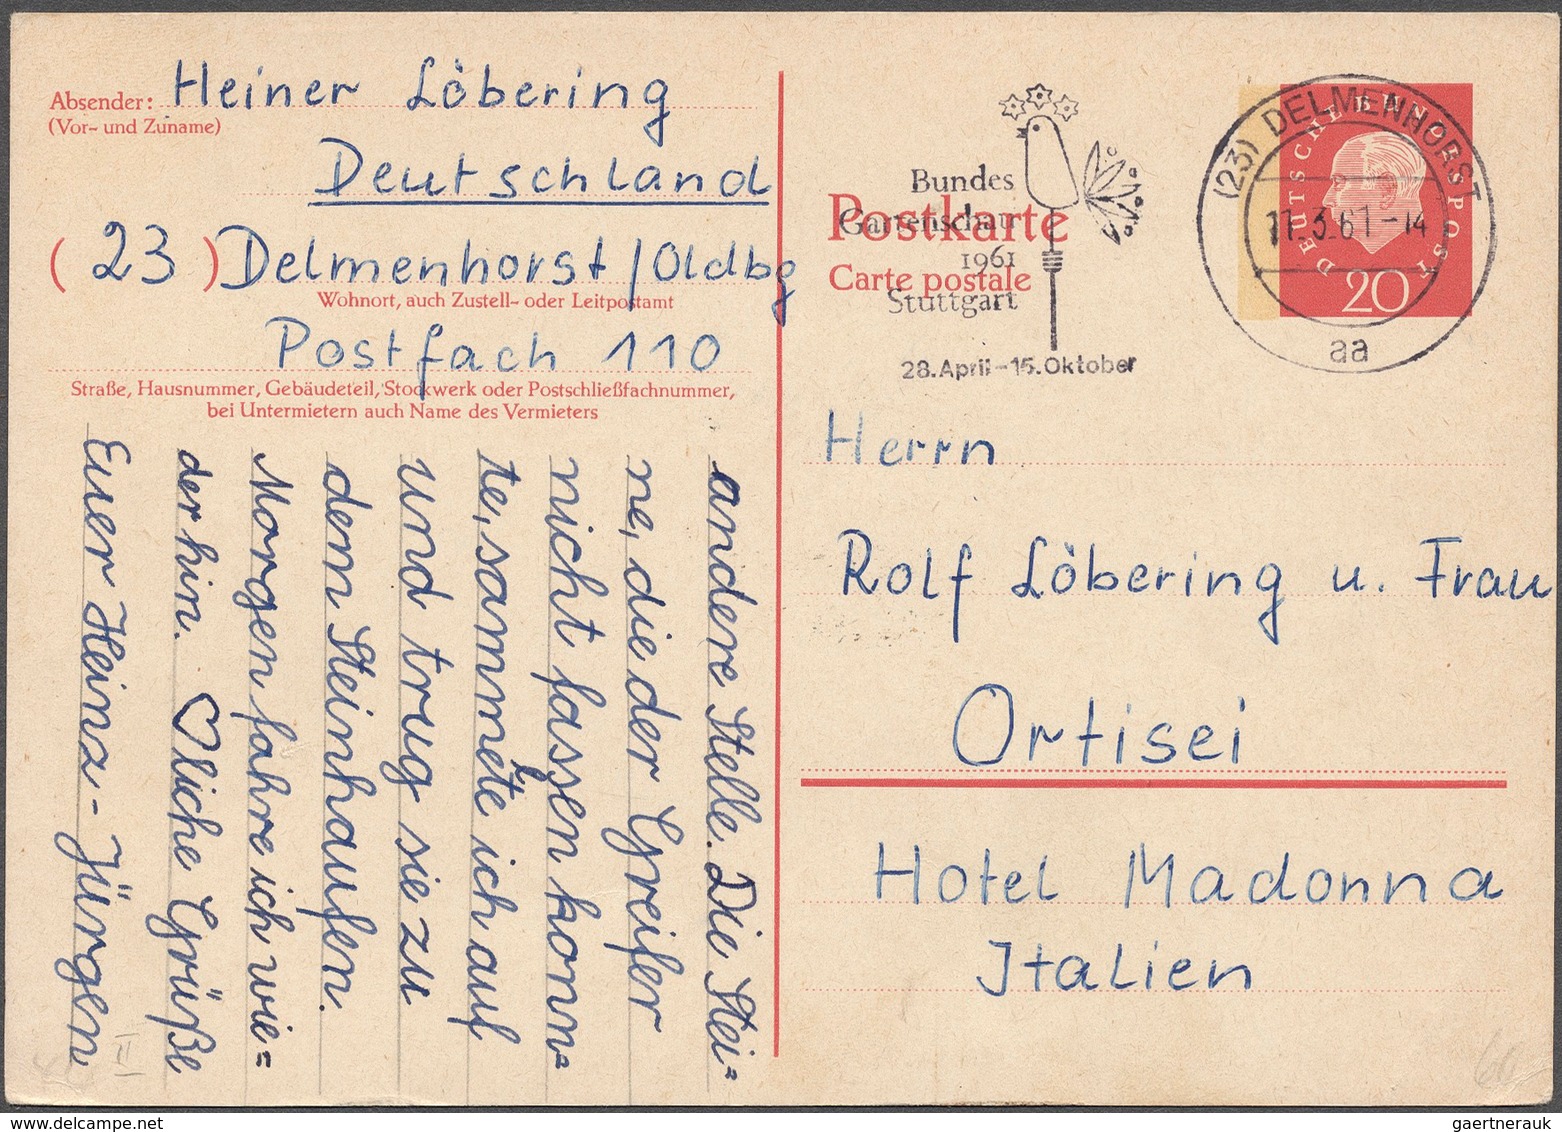 Absender: Heiner Löbering
(Vor- und Zuname)
Deutschland
(23) Delmenhorst/Oldbg
Wohnort, auch Zustell- oder Leitpostamt
Postfach 110
Straße, Hausnummer, Gebäudeteil, Stockwerk oder Postschließfachnummer,
bei Untermietern auch Name des Vermieters
andere Stelle. Die Stei=
ne, die der Greifer
nicht fassen konn=
te, sammelte ich auf
und trug sie zu
dem Steinhaufen.
Morgen fahre ich wie=
der hin. ♡liche Grüße
Euer Heinz-Jürgen
II
Bundes
Gartenschau
1961
Stuttgart
28. April-15. Oktober
Postkarte
Carte postale
(23) DELMENHORST
11.3.61-14
aa
DEUTSCHE BUNDESPOST
20
Herrn
Rolf Löbering u. Frau
Ortisei
Hotel Madonna
Italien
gaertnerauk